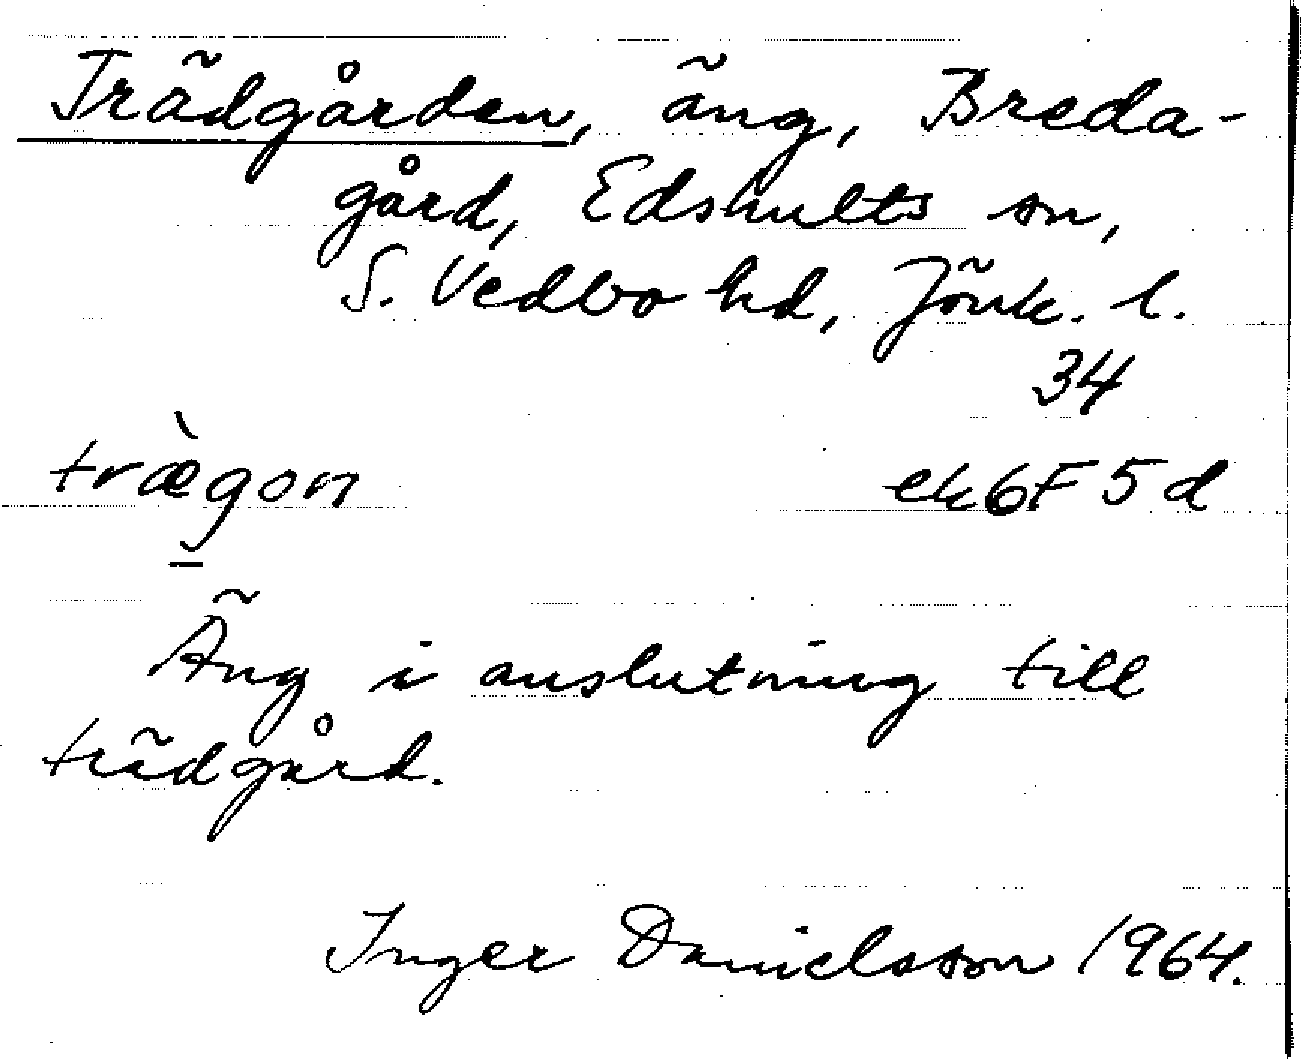 Trädgården, äng, Breda-
gård, Edshults sn,
S. Vedbo hd, Jönk. l.
34
træ̀gon ek6F5d
Äng i anslutning till
trädgård.
Inger Danielsson 1964.